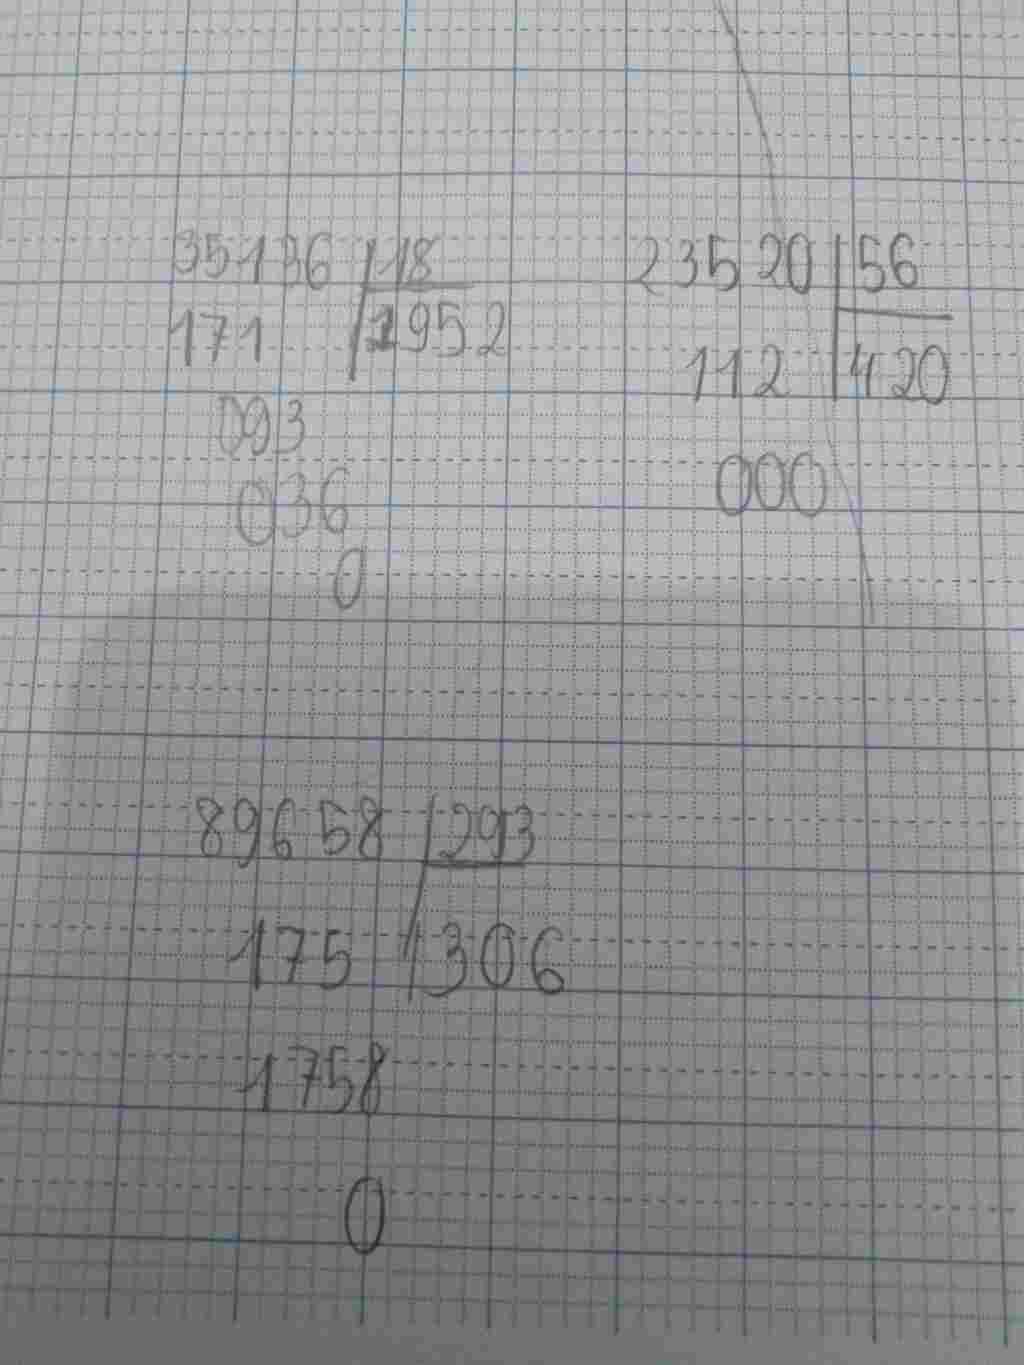 35136 18
171 1952
093
036
0
23520 56
112 420
000
89658 293
175 306
1758
0